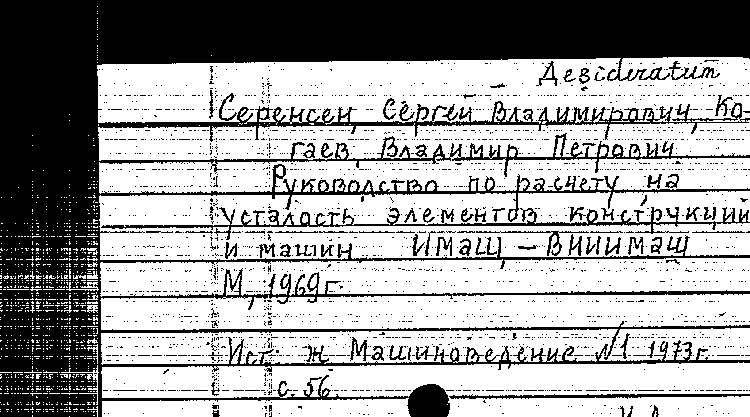 Дезideratum
Серенсен, Сергей Владимирович, Ко-
гаев, Владимир Петрович
Руководство по расчету на
усталость элементов конструкций
и машин. ИМАШ, – ВНИИМАШ
М, 1969г.
Ист. ж Машиноведение №1 1973г.
с. 56.